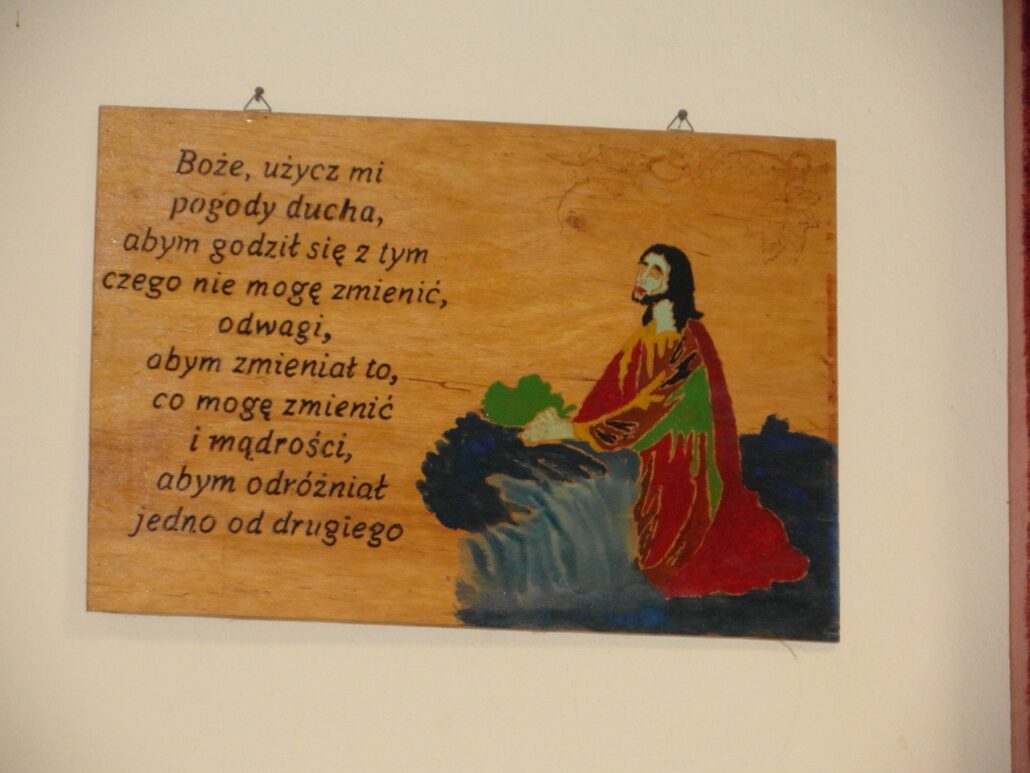 Boże, użycz mi
pogody ducha,
abym godził się z tym
czego nie mogę zmienić,
odwagi,
abym zmieniał to,
co mogę zmienić
i mądrości,
abym odróżniał
jedno od drugiego